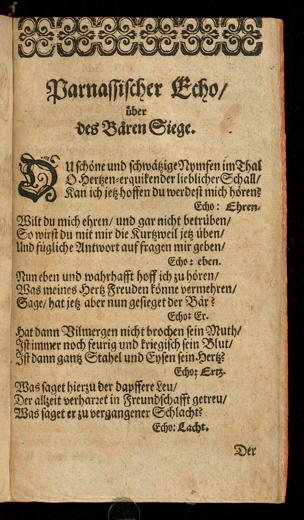 Parnassischer Echo/
über
des Bären Siege.
DU schöne und schwätzige Nymfen im Thal
O Hertzen-erquikender lieblicher Schall/
Kan ich jetz hoffen du werdest mich hören?
Echo: Ehren.
Wilt du mich ehren/ und gar nicht betrüben/
So wirst du mit mir die Kurtzweil jetz üben/
Und fügliche Antwort auf fragen mir geben/
Echo: eben.
Nun eben und wahrhafft hoff ich zu hören/
Was meines Hertz Freuden könne vermehren/
Sage/ hat jetz aber nun gesieget der Bär?
Echo: Er.
Hat dann Vilmergen nicht brochen sein Muth/
Ist immer noch feurig und kriegisch sein Blut/
Ist dann gantz Stahel und Eysen sein Hertz?
Echo: Ertz.
Was saget hierzu der dapffere Leu/
Der allzeit verharret in Freundschafft getreu/
Was saget er zu vergangener Schlacht?
Echo: Lacht.
Der